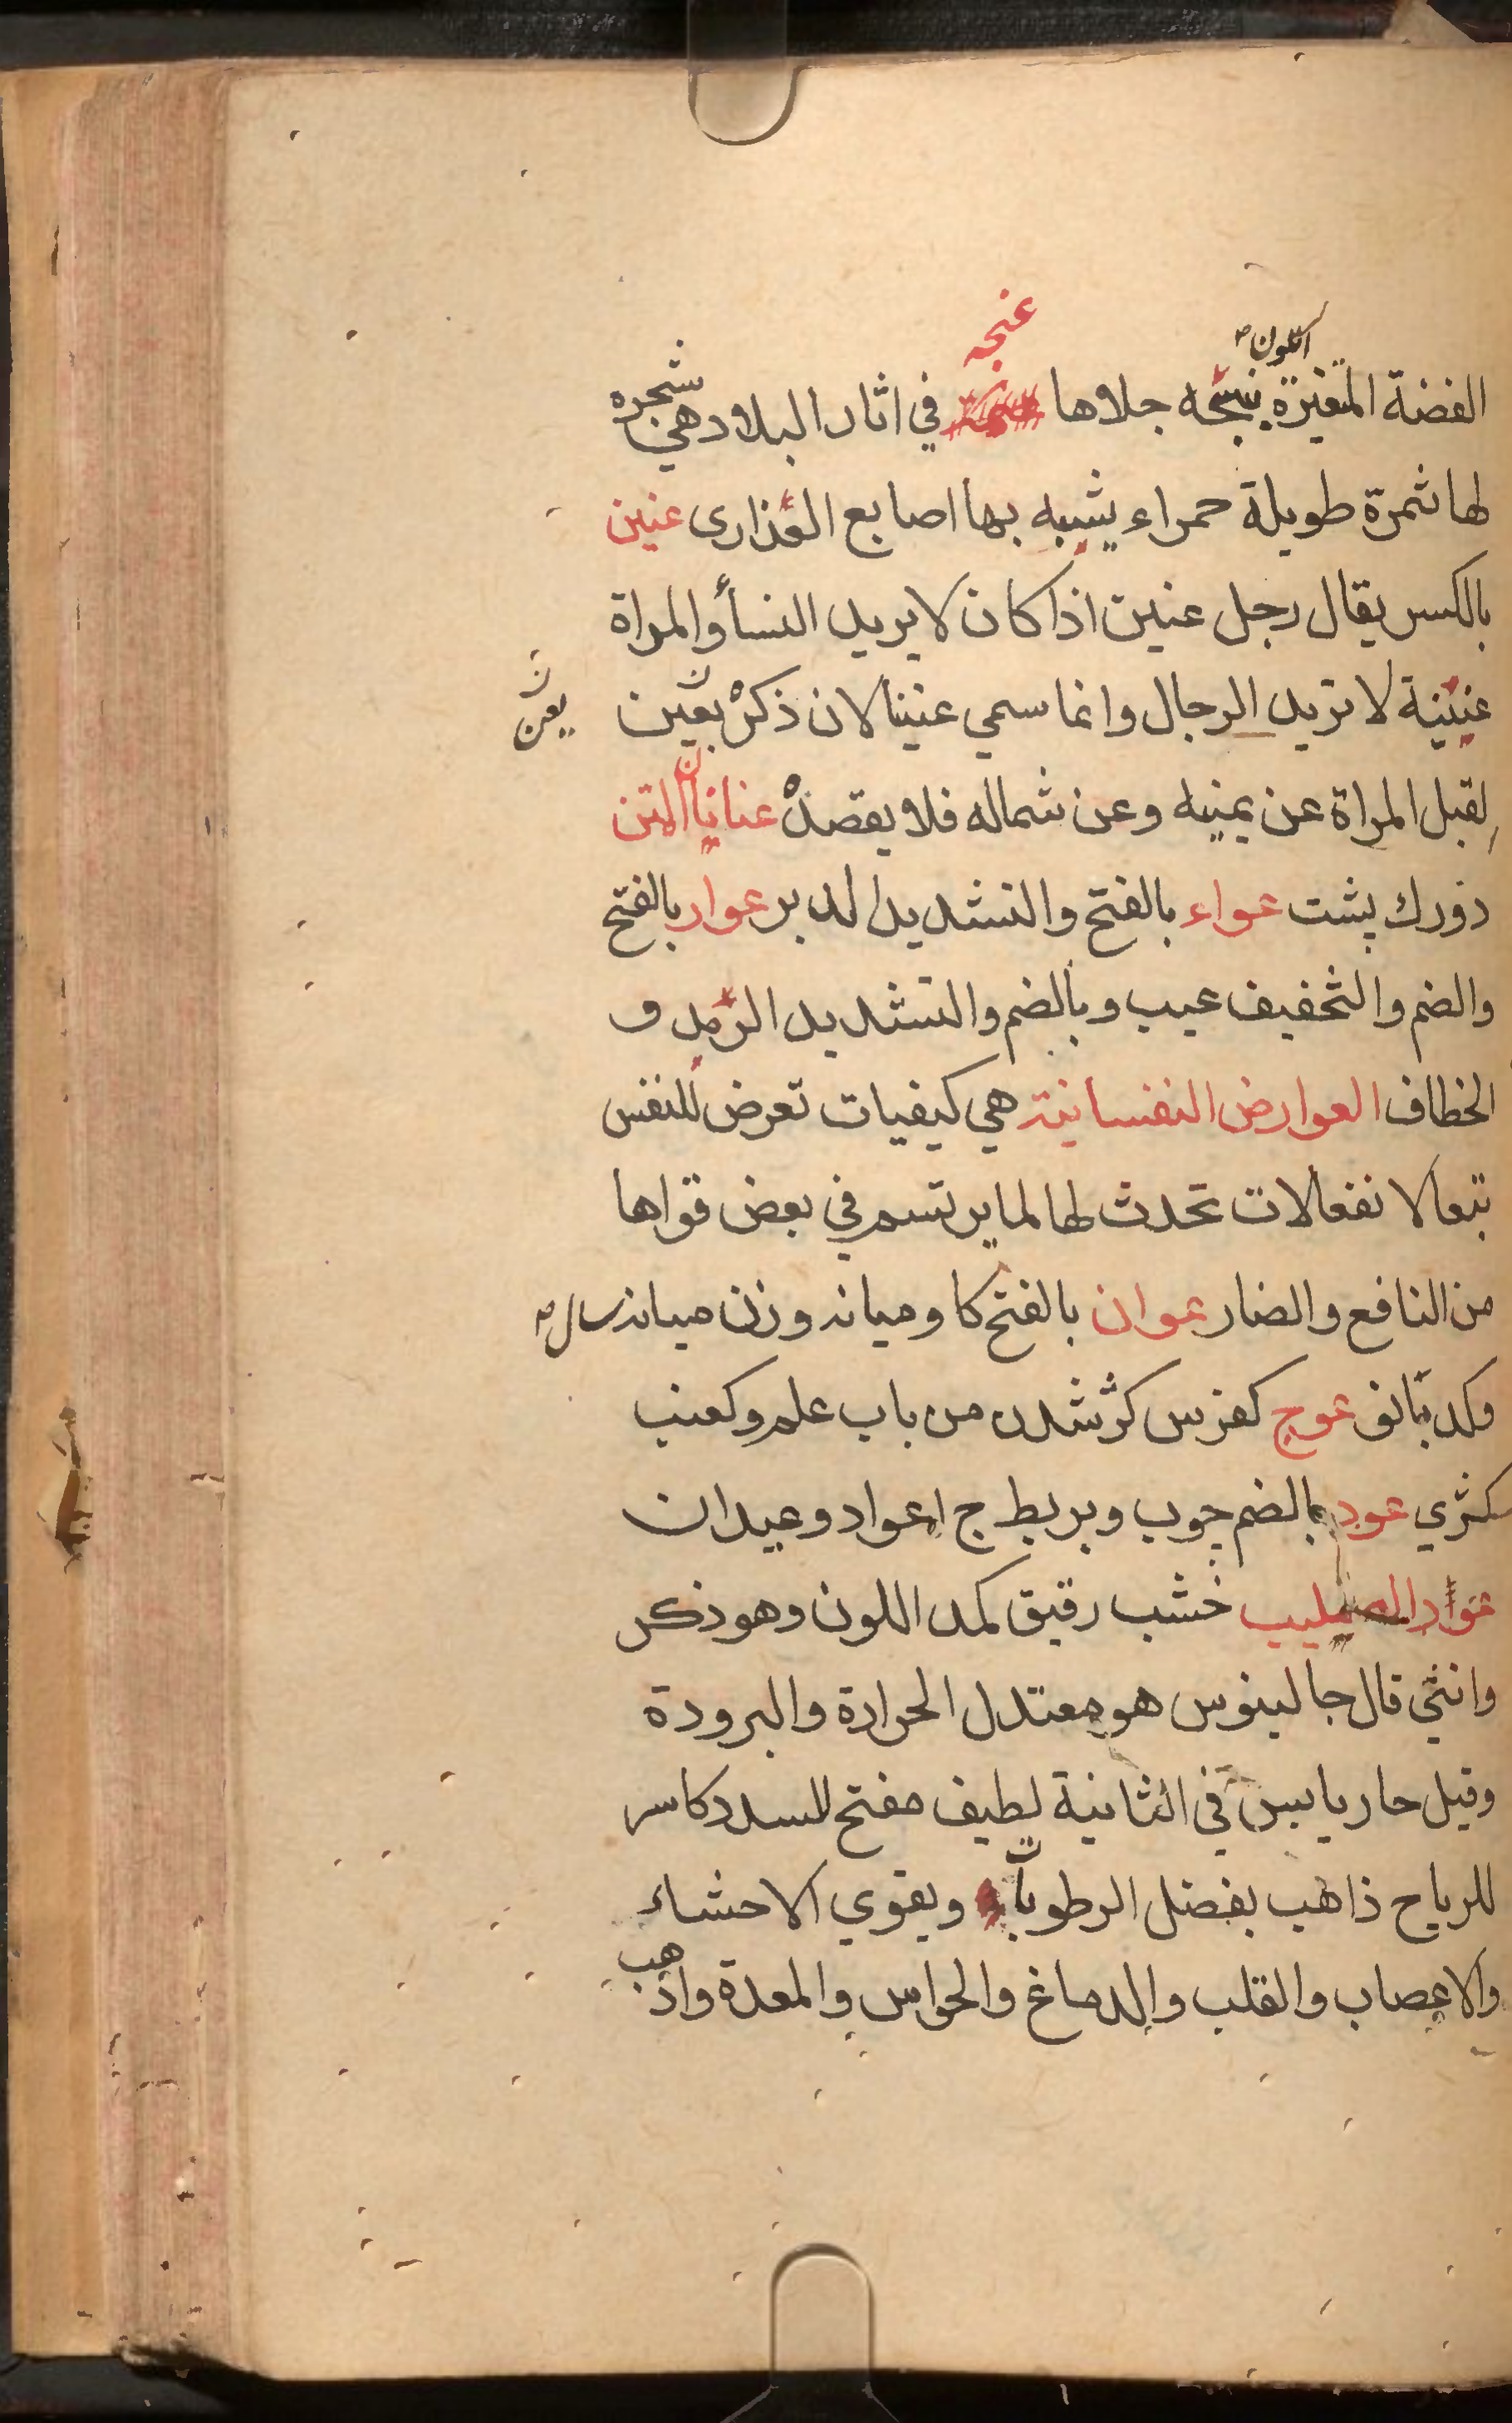 اللون
الفضة المتغيرة بنسجه جلاها عنجه في اثار البلاد هي شجره
لها ثمرة طويلة حمراء يشبه بها اصابع العذارى عنين
بالكسر يقال رجل عنين اذا كان لا يريد النسأ والمراة
عنينة لا تريد الرجال وانما سمي عنينا لان ذكرہ يعين
يعن
لقبل المراة عن يمينه وعن شماله فلا يقصدہ عنانا المتن
دورك پشت عواء بالفتح والتشديد الدبر عوار بالفتح
والضم والتخفيف عيب وبالضم والتشديد الرمد و
الخطاف العوارض النفسانية هي كيفيات تعرض للنفس
تبعا لانفعالات تحدث لها لما يرتسم في بعض قواها
من النافع والضار عوان بالفتح كاو ميانه وزن ميانه سال
وكدبانو عوج كفرس كژ شدن من باب علم وكعنب
كثري عود بالضم چوب وبربط ج اعواد وعيدان
عواد الصليب خشب رقيق كمد اللون وهو ذكر
وانثى قال جالينوس هو معتدل الحرارة والبرودة
وقيل حار يابس في الثانية لطيف مفتح للسدد كاسر
للرياح ذاهب بفضل الرطوبات ويقوي الاحشاء
والاعصاب والقلب والدماغ والحواس والمعدة واذهب